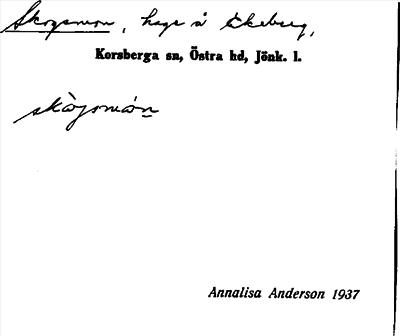 Skogsmon, hage å Ekeberg,
Korsberga sn, Östra hd, Jönk. l.
skògsmón
Annalisa Anderson 1937